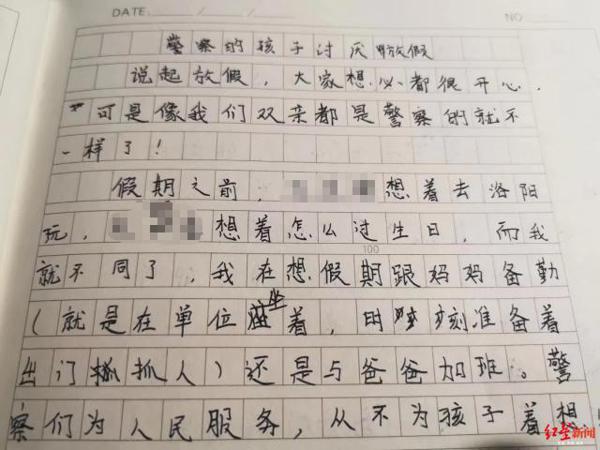 DATE / /
NO
警察的孩子讨厌放假
说起放假，大家想必都很开心.
可是像我们双亲都是警察的就不
一样了！
假期之前，想着去洛阳
玩，想着怎么过生日，而我
100
就不同了，我在想假期跟妈妈备勤
（就是在单位坐着，时刻准备着
出门抓人）还是与爸爸加班。警
察们为人民服务，从不为孩子着想
红星新闻